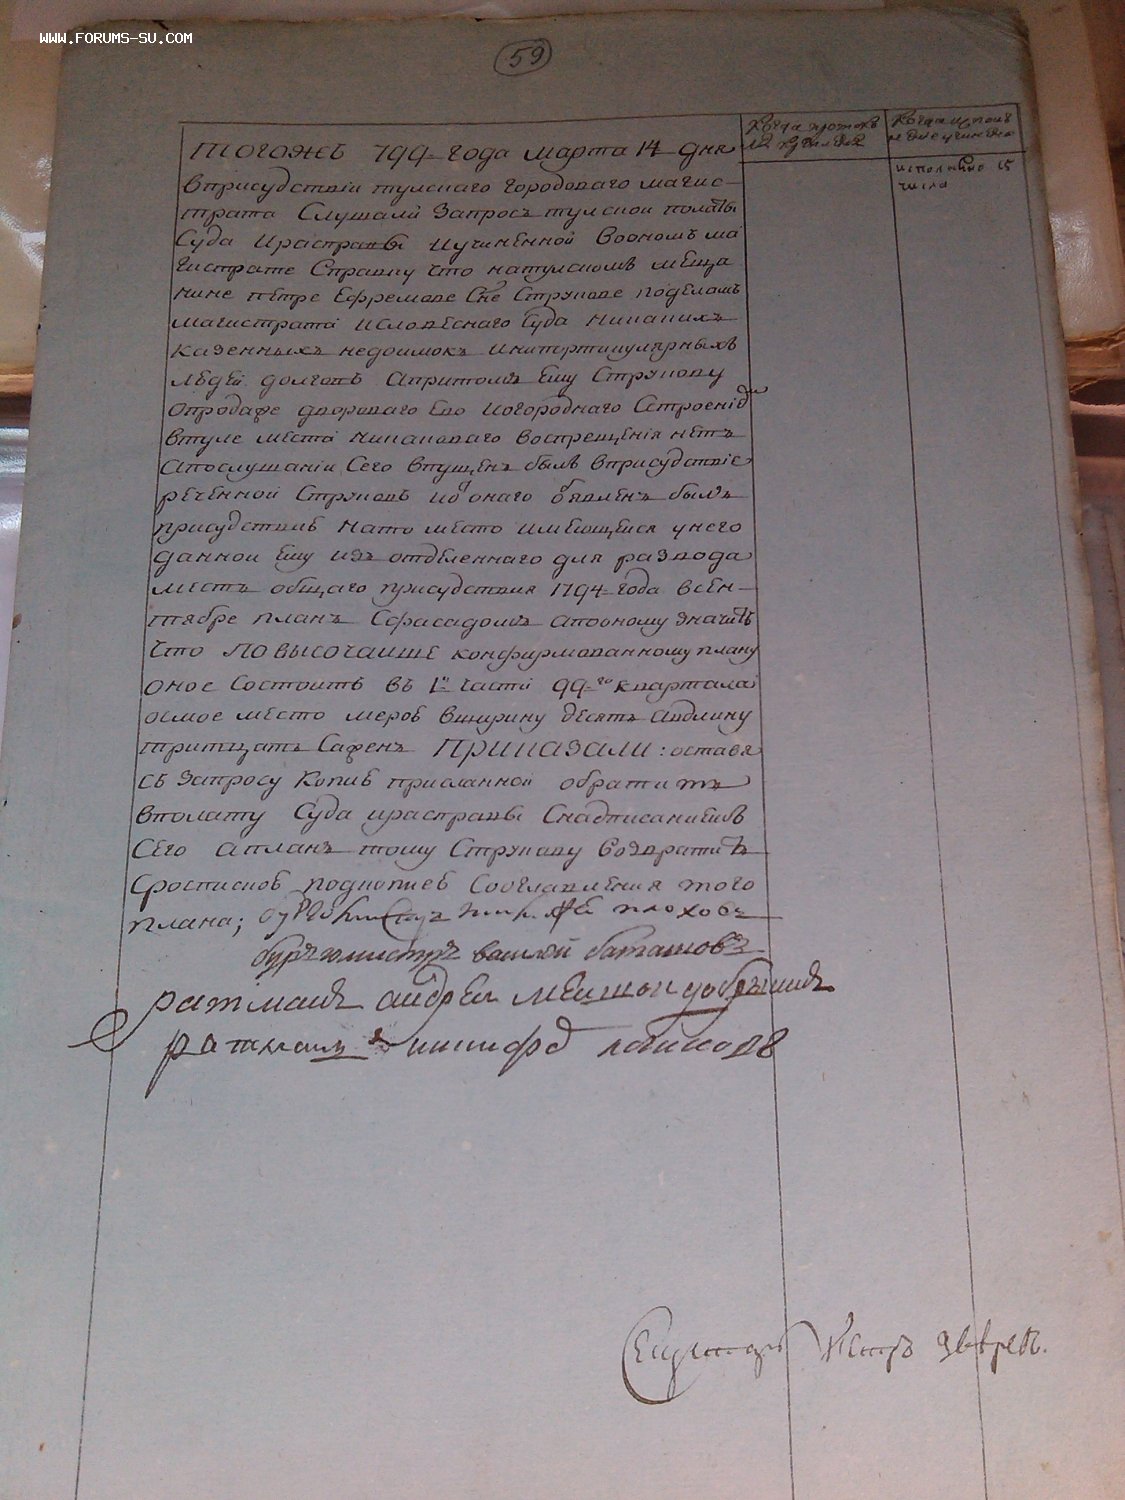 WWW.FORUMS-SU.COM
59
Когда проток
Когда испол
исполнено 15
числа
тогожъ 799 года марта 14 дня
вприсудствїи тулскаго городоваго магис-
трата Слушали Запросъ тулской полаты
Суда ирасправы иучиненной воономъ ма
гистрате Справки что натулскомъ меща
нине петре Ефремове Сне Струкове поделамъ
магистрата исловеснаго Суда никакихъ
казенныхъ недоимокъ ипитертикулярныхъ
людей долговъ апритомъ Ему Струкову
опродаже двороваго Ево иогороднаго Строенїя
втуле места никаковаго воспрещенїя нетъ
апослушанїи Сего впущенъ былъ вприсудствїе
реченной Струковъ иотонаго обявленъ былъ
присудствию нато место имеющейся унего
данной Ему изъ отделеннаго для развода
местъ общаго присудствия 1794 года всен-
тябре планъ Сфасадомъ апооному значитъ
Что ПО ВЫСОЧАИШЕ конфирмованному плану
оное Состоитъ въ 1й части 99-го квартала
осмое место мерою вширину десять авдлину
тритцать Сажень ПРИКАЗАЛИ: оставя
съ Запросу Копию присланной обратить
вполату Суда ирасправы Снадписаниемъ
Сего апланъ тому Струкову возвратить
Сроспискою подкопиею Сооглавления того
плана; плоховъ
бургомистръ василей баташовъ
ратманъ андреи
ратманъ
Секретарь Петръ Зверевъ.